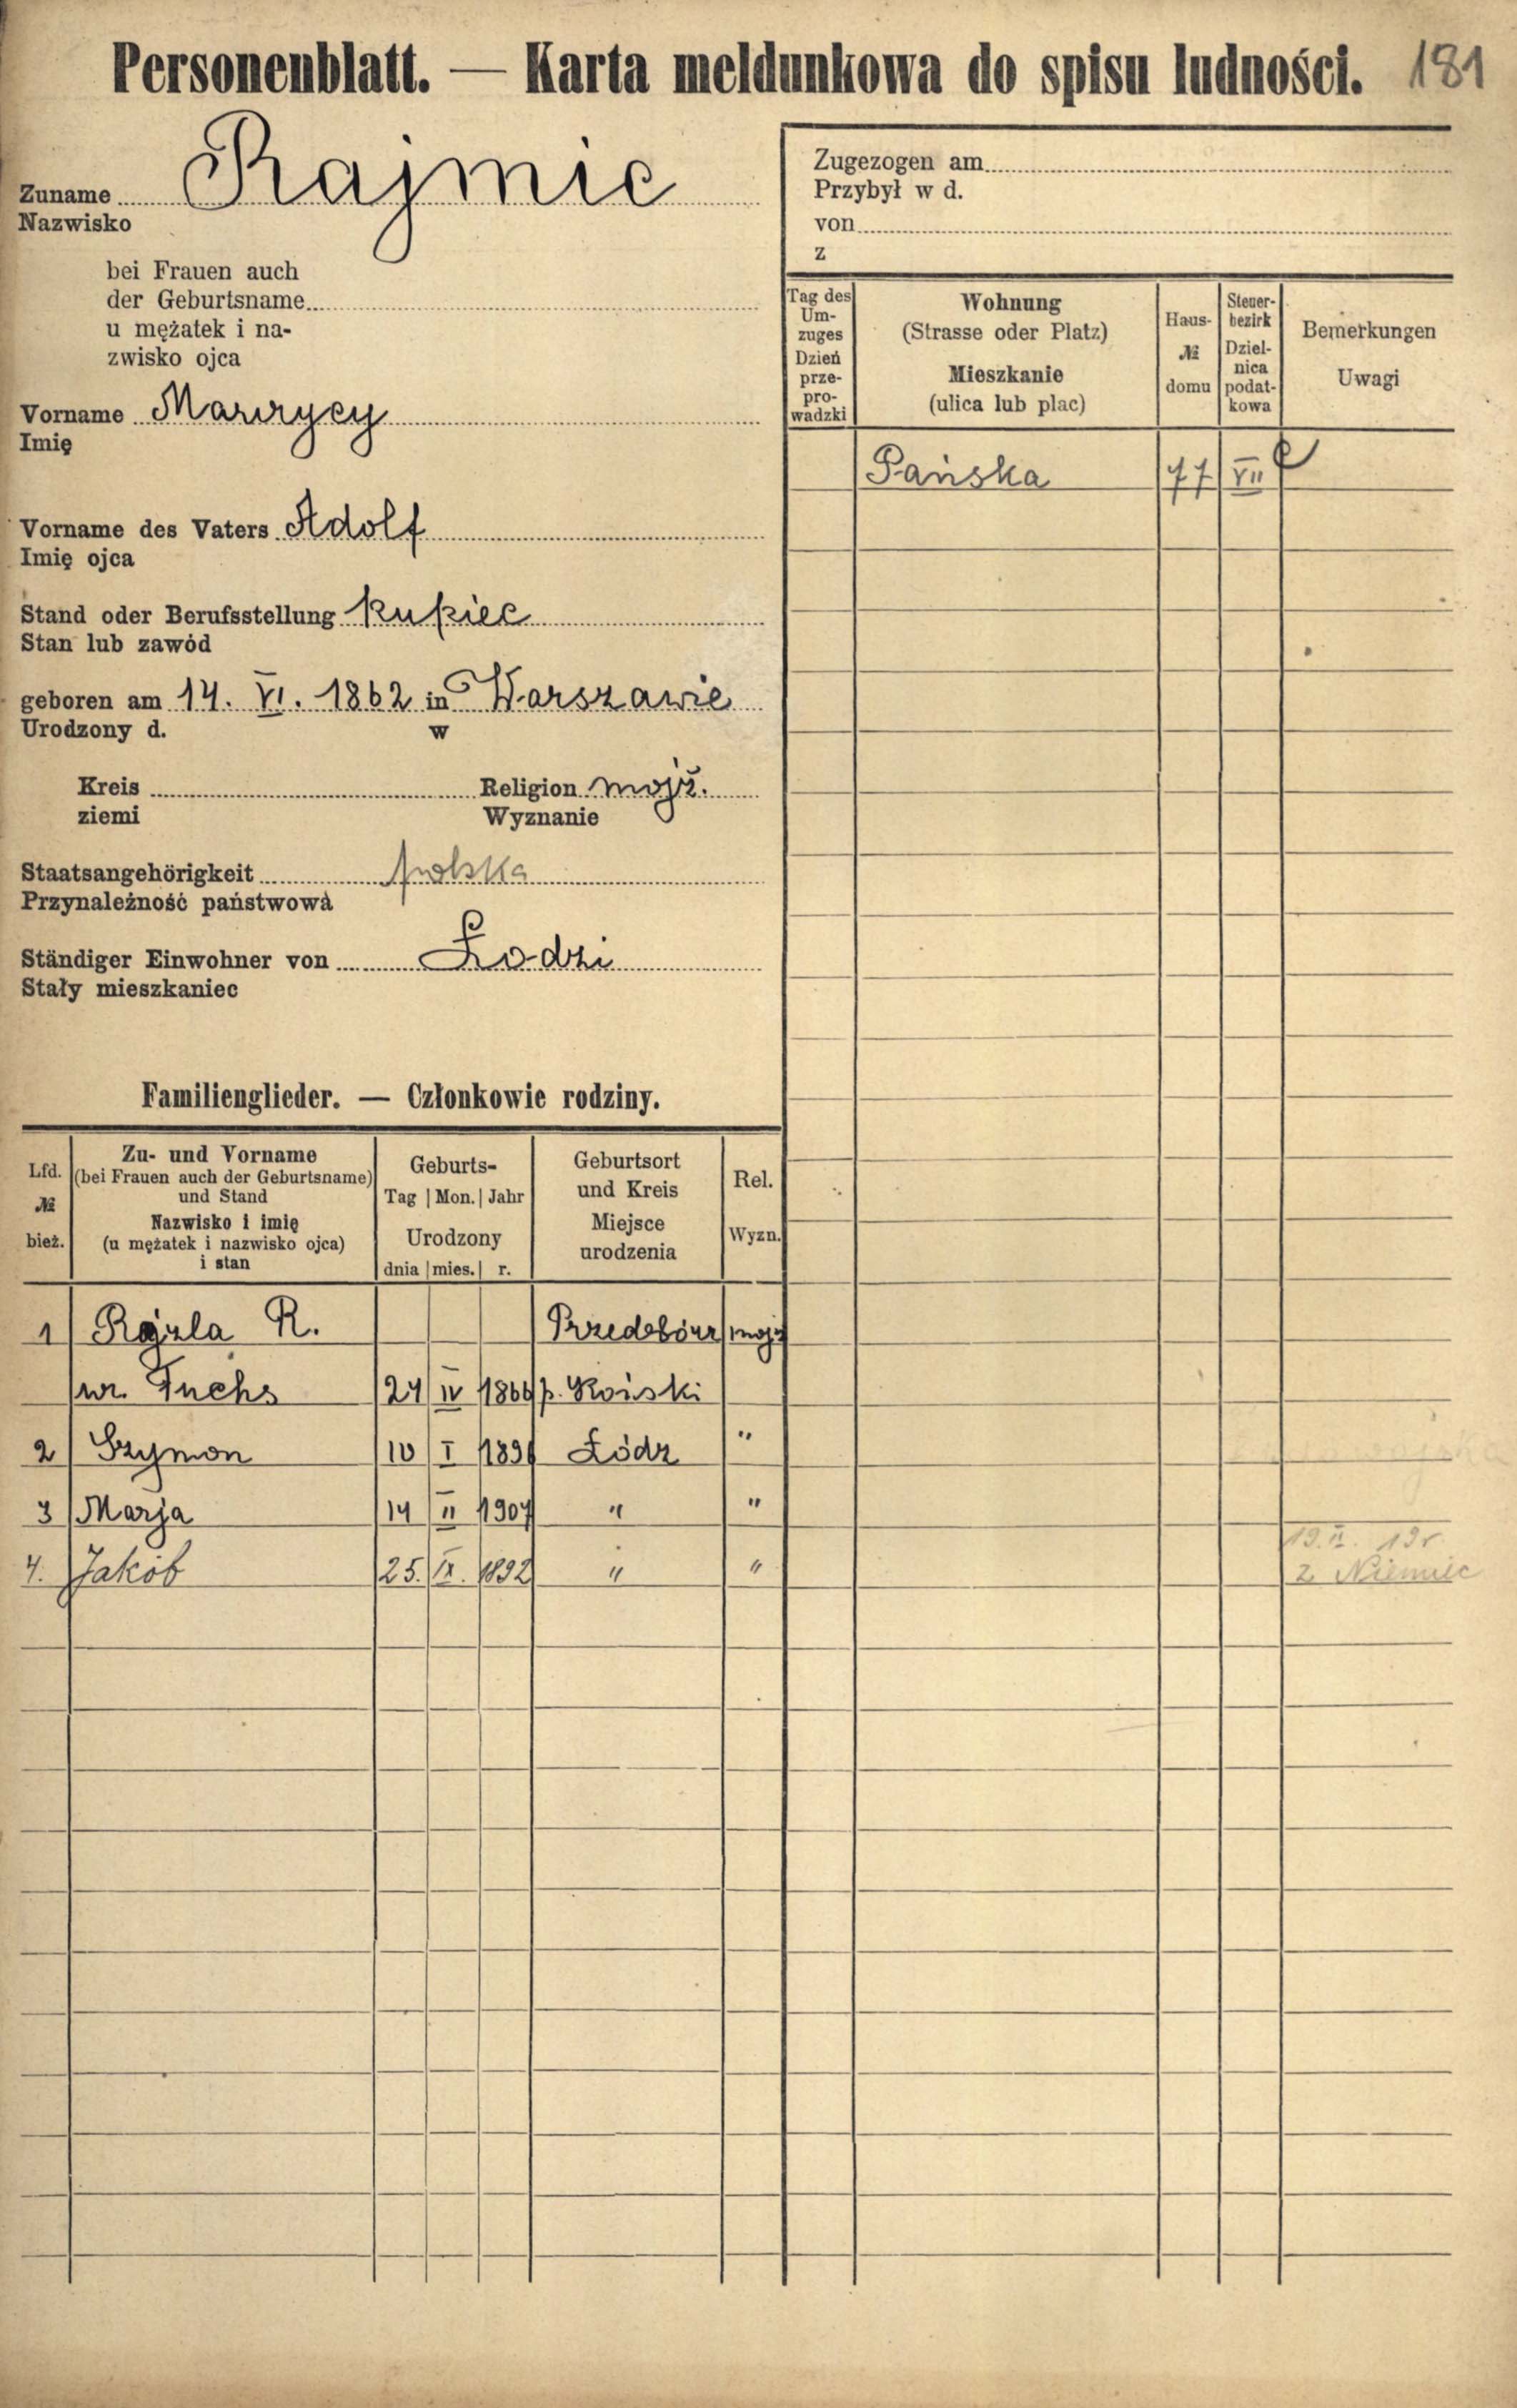 Personenblatt. — Karta meldunkowa do spisu ludności. 181
Zuname Rajmic
Nazwisko
bei Frauen auch
der Geburtsname
u mężatek i na-
zwisko ojca
Vorname Maurycy
Imię
Vorname des Vaters Adolf
Imię ojca
Stand oder Berufsstellung Kupiec
Stan lub zawód
geboren am 14. VI. 1862 in Warszawie
Urodzony d. w
Kreis Religion mojż.
ziemi Wyznanie
Staatsangehörigkeit polska
Przynależność państwowa
Ständiger Einwohner von Łodzi
Stały mieszkaniec
Zugezogen am
Przybył w d.
von
z
Tag des Um-zuges
Dzień prze-pro-wadzki
Wohnung
(Strasse oder Platz)
Mieszkanie
(ulica lub plac)
Haus-
№
domu
Steuer-bezirk
Dziel-nica podat-kowa
Bemerkungen
Uwagi
Pańska 77 VII
19. II.
z Niemiec
Familienglieder. — Członkowie rodziny.
Lfd.
№
bież.
Zu- und Vorname
(bei Frauen auch der Geburtsname)
und Stand
Nazwisko i imię
(u mężatek i nazwisko ojca)
i stan
Geburts-
Tag | Mon. | Jahr
Urodzony
dnia | mies. | r.
Geburtsort
und Kreis
Miejsce
urodzenia
Rel.
Wyzn.
1 Rajzla R. Przedbórz mojż
Fuchs 24 IV 1869 p. Koński
2 Szymon 10 I Łódź "
3 Marja 14 II 1907 " "
4. Jakób 25. 1892 " "